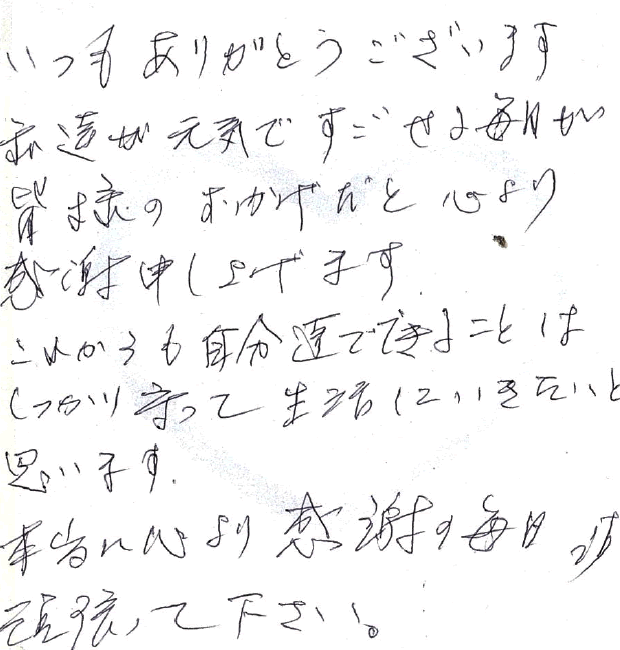 いつもありがとうございます
私達が元気ですごせる毎日が
皆様のおかげだと心より
感謝申し上げます.
これからも自分達でできることは
しっかり守って生活していきたいと
思います.
本当に心より感謝の毎日です
頑張って下さい。